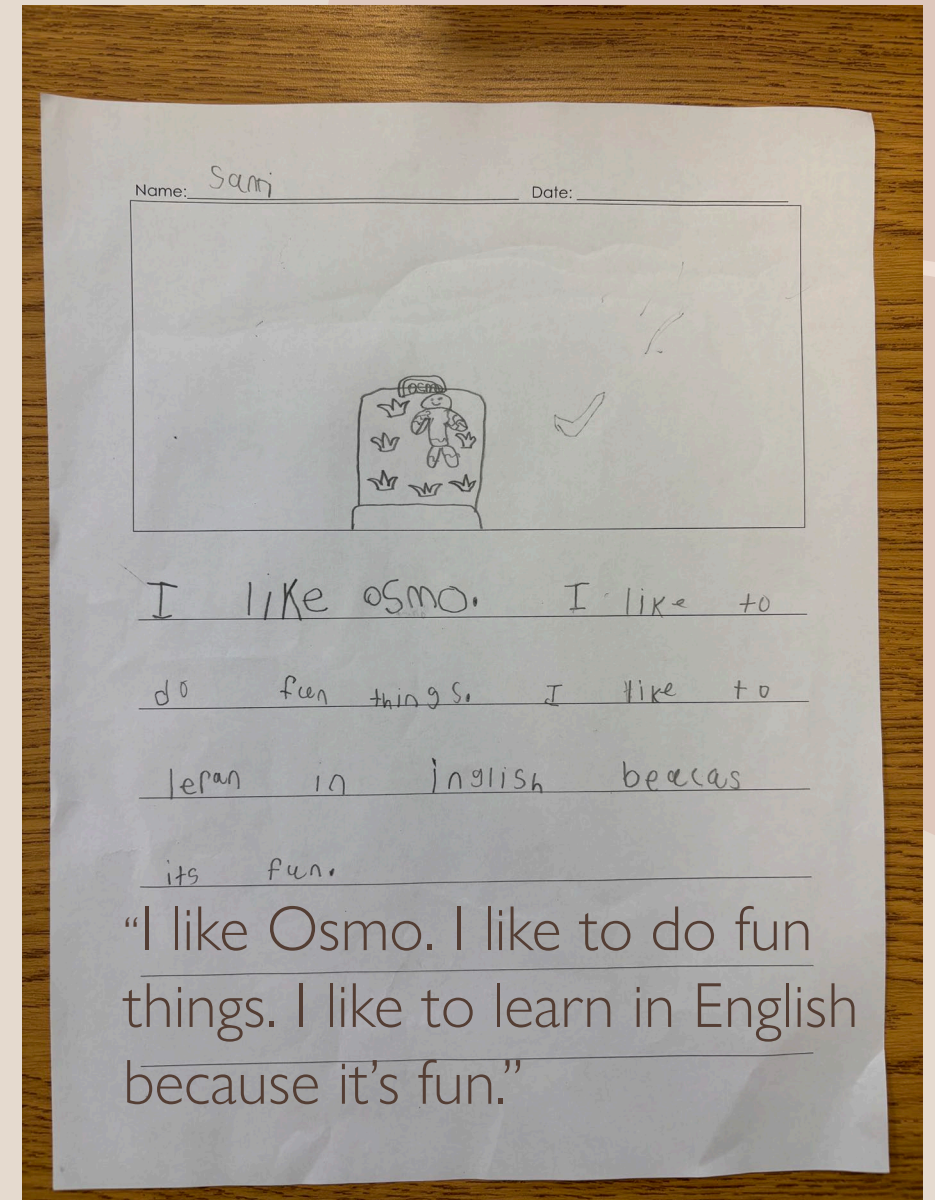 Name: Sami Date:
osmo
I like osmo. I like to
do fun things. I like to
leran in inglish beacas
its fun.
“I like Osmo. I like to do fun
things. I like to learn in English
because it’s fun.”